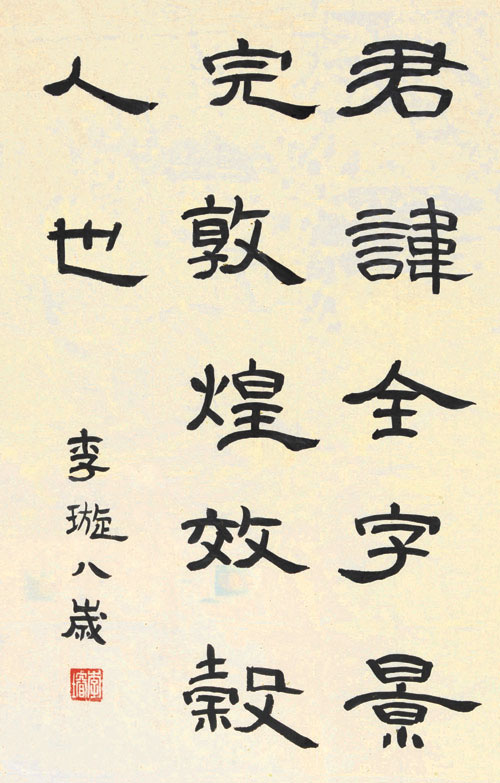 君諱全字景
完敦煌效穀
人也
李璇八歲